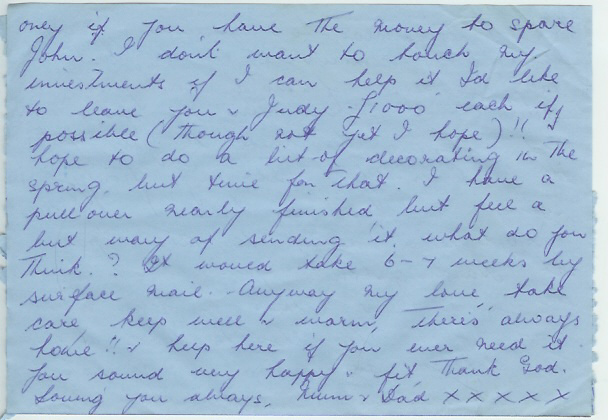 only if you have the money to spare
John. I don't want to touch my
investments if I can help it I'd like
to leave you & Judy £1000 each if
possible (though not yet I hope)!! I
hope to do a bit of decorating in the
spring, but time for that. I have a
pullover nearly finished but feel a
bit wary of sending it, what do you
think.? It would take 6-7 weeks by
surface mail. Anyway my love, take
care, keep well & warm, There's always
home!! & help here if you ever need it.
You sound very happy & fit Thank God.
Loving you always, Mum & Dad X X X X X